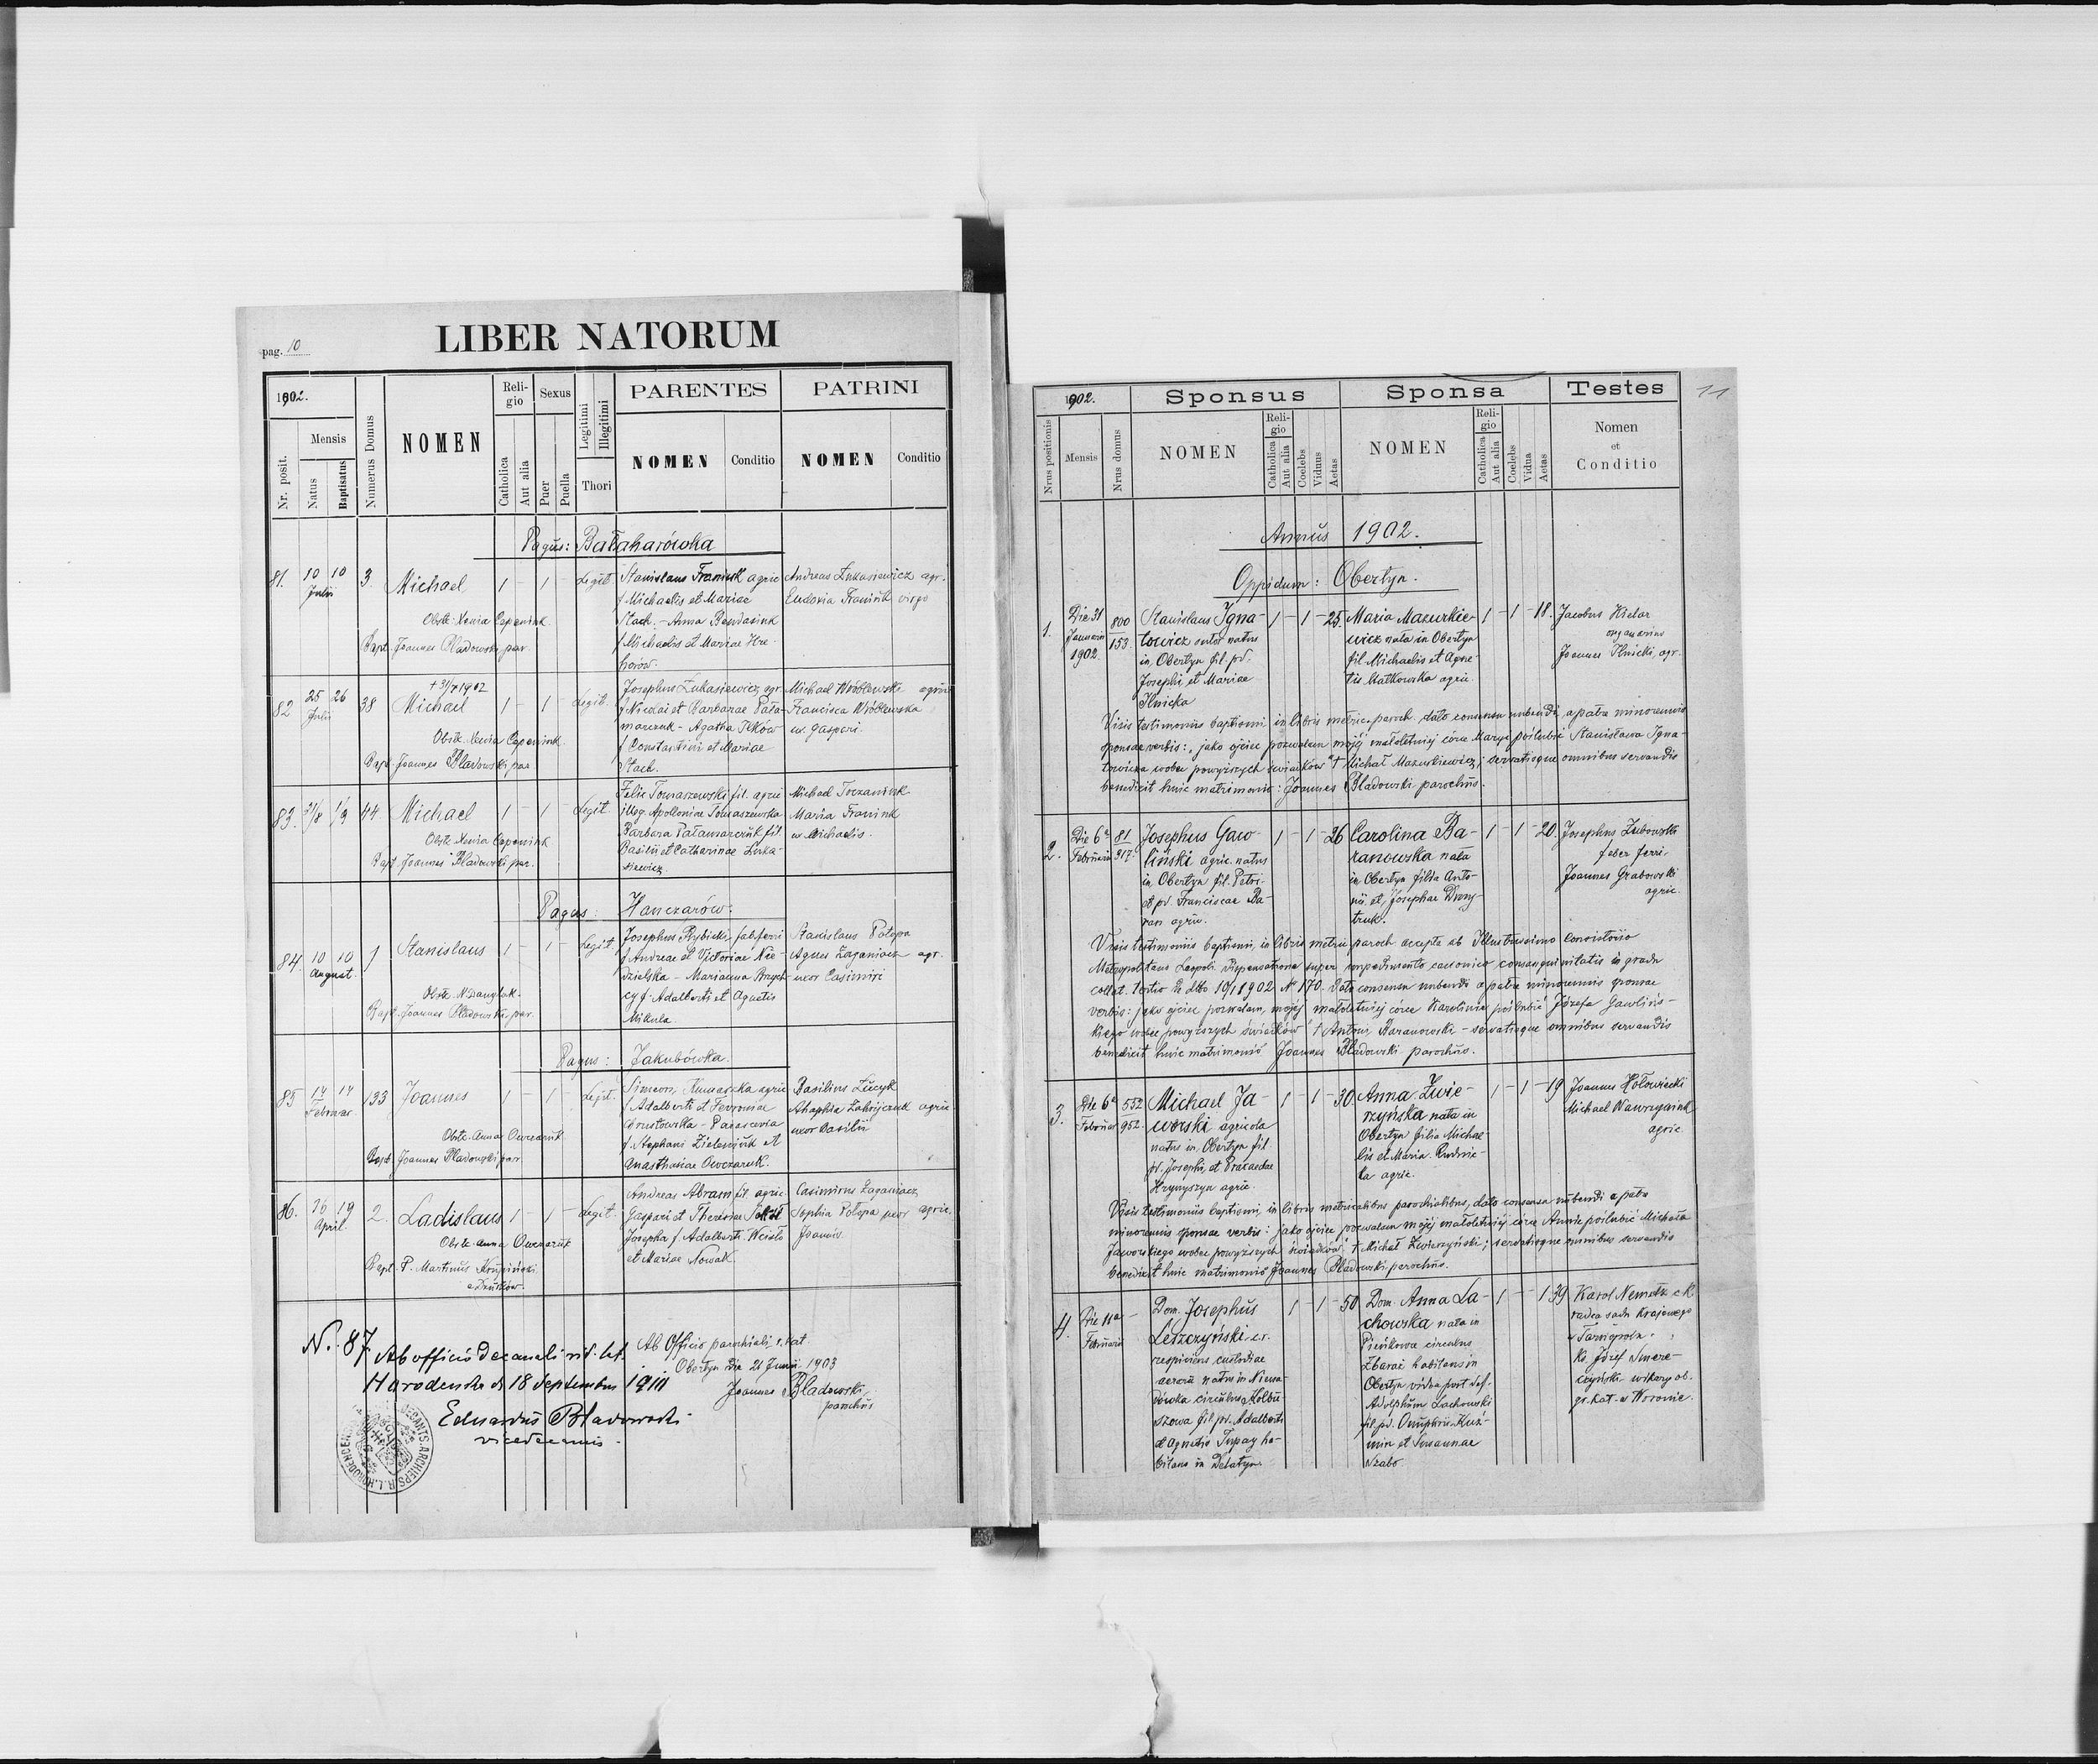 pag. 10
LIBER NATORUM
1902.
Nr. posit.
Mensis
Natus
Baptisatus
Numerus Domus
NOMEN
Religio
Catholica
Aut alia
Sexus
Puer
Puella
Legitimi
Illegitimi
Thori
PARENTES
NOMEN
Conditio
PATRINI
NOMEN
Conditio
Pagus: Bałaharówka
81. 10 10 3. Michael 1 - 1 - Legit.
Julii
Obste. Xenia Capenink
Bapt. Joannes Bladowski, par.
Stanislaus Franiuk agric
f Michaelis et Mariae
Stach. - Anna
f Michaelis et Mariae Hre-
horów.
Andreas Łukasiewicz agr.
Eudoxia Franiuk virgo
82 25 26 38 Michael 1 - 1 - Legit.
Julii
Obste. Xenia Capenink
Bapt. Joannes Bladowski par.
Josephus Łukasiewicz agr.
f Nicolai et Barbarae Pała-
marczuk - Agatha Ilków
f Constantini et Mariae
Stach.
Michael Wróblewski agric
Francisca Wróblewska
ux. Gaspari.
83. 31/8 1/9 44 Michael 1 - 1 - Legit
Obste. Xenia Capenink
Bapt. Joannes Bladowski par.
Felix Tomaszewski fil. agric
illeg. Apolloniae Tomaszewska
Barbara Pałamarczuk fil.
Basilii et Catharinae Łuka-
siewicz.
Michael
Maria Franiuk
ux Michaelis.
Pagus: Hanczarów.
84. 10 10 1 Stanislaus 1 - 1 - Legit.
August.
Obste. N. Danylak.
Bapt. Joannes Bladowski, par.
Josephus Rybicki, fab ferri
f Andreae et Victoriae Nie-
dzielska - Marianna
f. Adalberti et Agnetis
Mikula.
Stanislaus Potopa
Agnes Zaganiacz agr.
uxor Casimiri
Pagus: Jakubówka.
85 14 14 133 Joannes 1 - 1 - Legit.
Februar.
Obste. Anna Owczaruk
Bapt. Joannes Bladowski par
Simeon agric
f Adalberti et Fevroniae
- Parascevia
f. Stephani et
Anasthasiae Owczaruk.
Basilius Łucyk
Ahaphia agric
uxor Basilii
86. 16 19 2. Ladislaus 1 - 1 - Legit.
April.
Obste. Anna Owczaruk
Bapt. P. Martinus Krupiński
Andreas Abram fil. agric
Gaspari et Theresiae
Josepha f Adalberti Weisło
et Mariae Nowak.
Casimirus Zaganiacz
Sophia Potopa uxor agric.
Joannis.
N. 87
Ab Officio parochiali r. lat.
Obertyn die 21 Junii 1903
Joannes Bladowski
parochus
Ab officio decanali rit. lat.
Horodenka d 18 Septembris 1911
Eduardus Bladowski
vicedecanus.
11
1902.
Nrus positionis
Mensis
Nrus domus
Sponsus
NOMEN
Religio
Catholica
Aut alia
Coelebs
Viduus
Aetas
Sponsa
NOMEN
Religio
Catholica
Aut alia
Coelebs
Vidua
Aetas
Testes
Nomen
et
Conditio
Annus 1902.
Oppidum: Obertyn.
1. Die 31 Januarii 1902. 800 153.
Stanislaus Igna-
towicz sutor natus
in Obertyn fil. pd.
Josephi et Mariae
Ilnicka
1 - 1 - 25.
Maria Mazurkie-
wicz nata in Obertyn
fil Michaelis et Agne-
tis Małkowska agric.
1 - 1 - 18.
Jacobus Kielar
organarius
Joannes Ilnicki, agr.
Visis testimoniis baptismi in libris metric. paroch. dato consensu nubendi a patre minorennis
sponsae verbis: „jako ojciec pozwalam mojej małoletniej córce Maryi poślubić Stanisława Igna-
towicza wobec powyższych świadków" † Michał Mazurkiewicz; servatisque omnibus servandis
benedixit huic matrimonio: Joannes Bladowski parochus.
2. Die 6a Februarii 81 317.
Josephus Gaw-
liński agric. natus
in Obertyn fil. Petri
et pd. Franciscae Ba-
ran agric.
1 - 1 - 26
Carolina Ba-
ranowska nata
in Obertyn filia Anto-
nii et Josephae Dmy-
truk.
1 - 1 - 20.
Josephus Zubowski
faber ferri.
Joannes Grabowski
agric.
Visis testimoniis baptismi, in libris metric paroch accepta ab Illustrissimo Consistorio
Metropolitano Leopoli dispensatione super impedimento canonico consanguinitatis in gradu
collat. tertio de dtto 10/1 1902 No 170. Dato consensu nubendi a patre minorennis sponsae
verbis: jako ojciec pozwalam, mojej małoletniej córce Karolinie poślubić Józefa Gawliń-
skiego wobec powyższych świadków † Antoni Baranowski - servatisque omnibus servandis
benedixit huic matrimonio Joannes Bladowski parochus.
3. Die 6a Februar. 552 952.
Michael Ja-
worski agricola
natus in Obertyn fil.
pd. Josephi, et Praxedae
Hrynyszyn agric.
1 - 1 - 30
Anna Zwie-
rzyńska nata in
Obertyn filia Michae-
lis et Maria Rudnic-
ka agric.
1 - 1 - 19
Joannes Hołowiecki
Michael
agric
Visis testimoniis baptismi, in libris metricalibus parochialibus, dato consensu nubendi a patre
minorennis sponsae verbis: jako ojciec pozwalam mojej małoletniej córce Annie poślubić Michała
Jaworskiego wobec powyższych świadków. † Michał Zwierzyński; servatisque omnibus servandis
benedixit huic matrimonio Joannes Bladowski parochus.
4. Die 11a Februarii
Dom. Josephus
Leszczyński c.r.
respiciens custodiae
aerarii natus in
circulus Kolbu-
szowa fil. pd. Adalberti
et Agnetis Tupay ha-
bitans in Delatyn
1 - 1 - 50
Dom. Anna La-
chowska nata in
Pieńkowce circulus
Zbaraż habitans in
Obertyn vidua post def.
Adolphum Lachowski
fil. pd. Onuphrii Kuź-
min et Susannae
Szabo.
1 - - 1 39
Karol Nemetz c.k.
radca sądu krajowego
w Tarnopolu.
Ks. Józef Smere-
czyński wikary ob.
gr. kat. w Woronie.